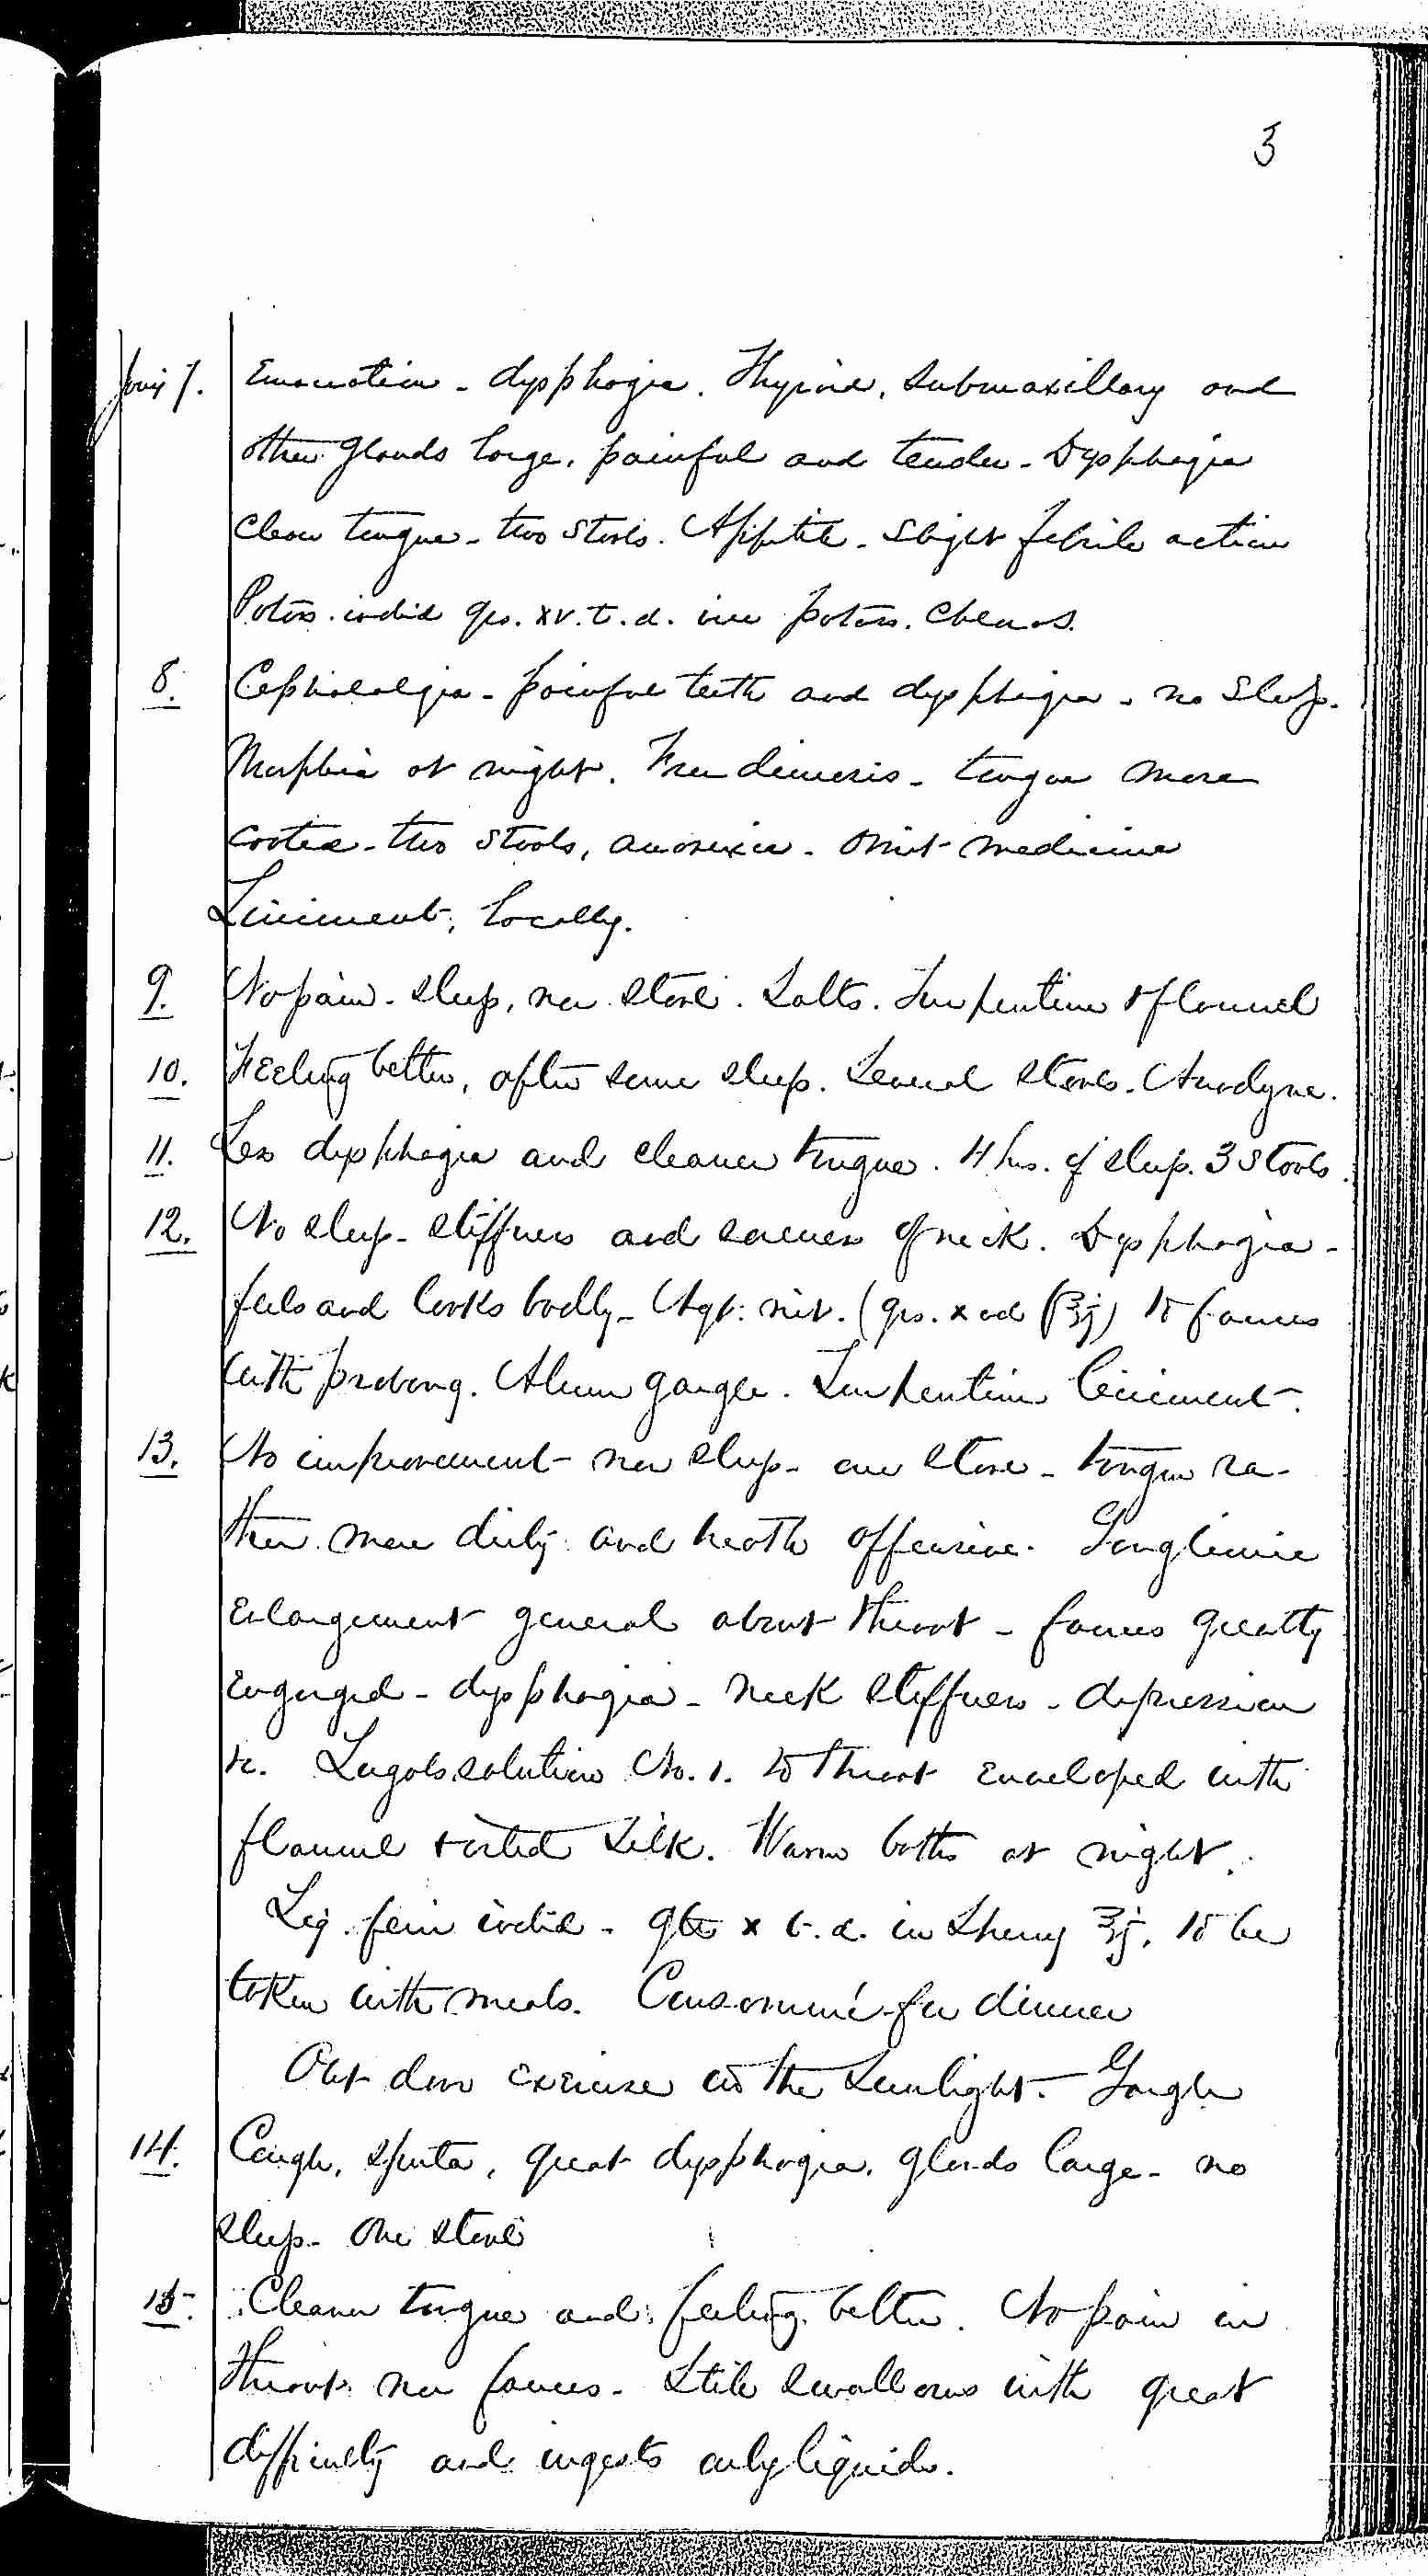 3
7. Emaciation - dysphagia. Thyroid, submaxillary and
other glands large, painful and tender - Dysphagia
Clean tongue - two stools. Appetite - Slight febrile action
Potass. iodid grs. xv. t.d. in potass.
8. Cephalalgia - painful teeth and dysphagia - no sleep.
Morphia at night. Free diuresis - tongue more
coated - two stools, anorexia - Omit medicine
Liniment, locally.
9. No pain - sleep, no stool. Salts. Turpentine & flannel
10. Feeling better, after some sleep. Several stools. Anodyne.
11. Less dysphagia and cleaner tongue. 4 hrs. of sleep. 3 stools.
12. No sleep - stiffness and soreness of neck. Dysphagia -
feels and looks badly - Agt: nit. (grs. x ad f℥j) to fauces
with probang. Alum gargle. Turpentine liniment.
13. No improvement - no sleep - one stool - tongue ra-
ther more dirty and breath offensive. Ganglionic
Enlargement general about throat - fauces greatly
Engorged - dysphagia - neck stiffness - depression
&c. Lugols solution No. 1. to throat enveloped with
flannel & oiled silk. Warm baths at night.
Liq. ferri iodid - gtts x t.d. in Sherry ℥j, to be
taken with meals. Consommé for dinner
Out door exercise in the sunlight. Gargle
14. Cough, sputa, great dysphagia, glands large - no
sleep - One stool
15. Cleaner tongue and feeling better. No pain in
throat nor fauces - Still swallows with great
difficulty and ingests only liquids.